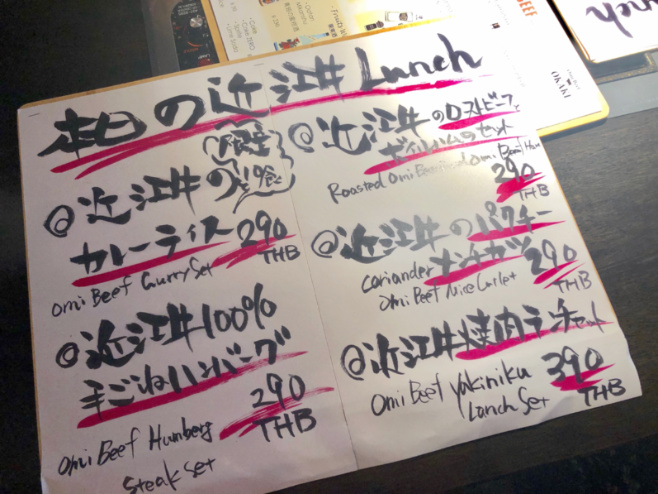 本日の近江牛Lunch
@近江牛の
カレーライス 290
THB
Omi Beef Curry Set
@近江牛100%
手ごねハンバーグ
290
THB
Omi Beef Humberg
Steak Set
@近江牛のローストビーフと
セット
Roasted Omi Beef
290
THB
@近江牛のパクチー
メンチカツ 290
THB
Coriander
Omi Beef
@近江牛焼肉ランチセット
390
THB
Omi Beef Yakiniku
Lunch Set
BEEF
OKAKI